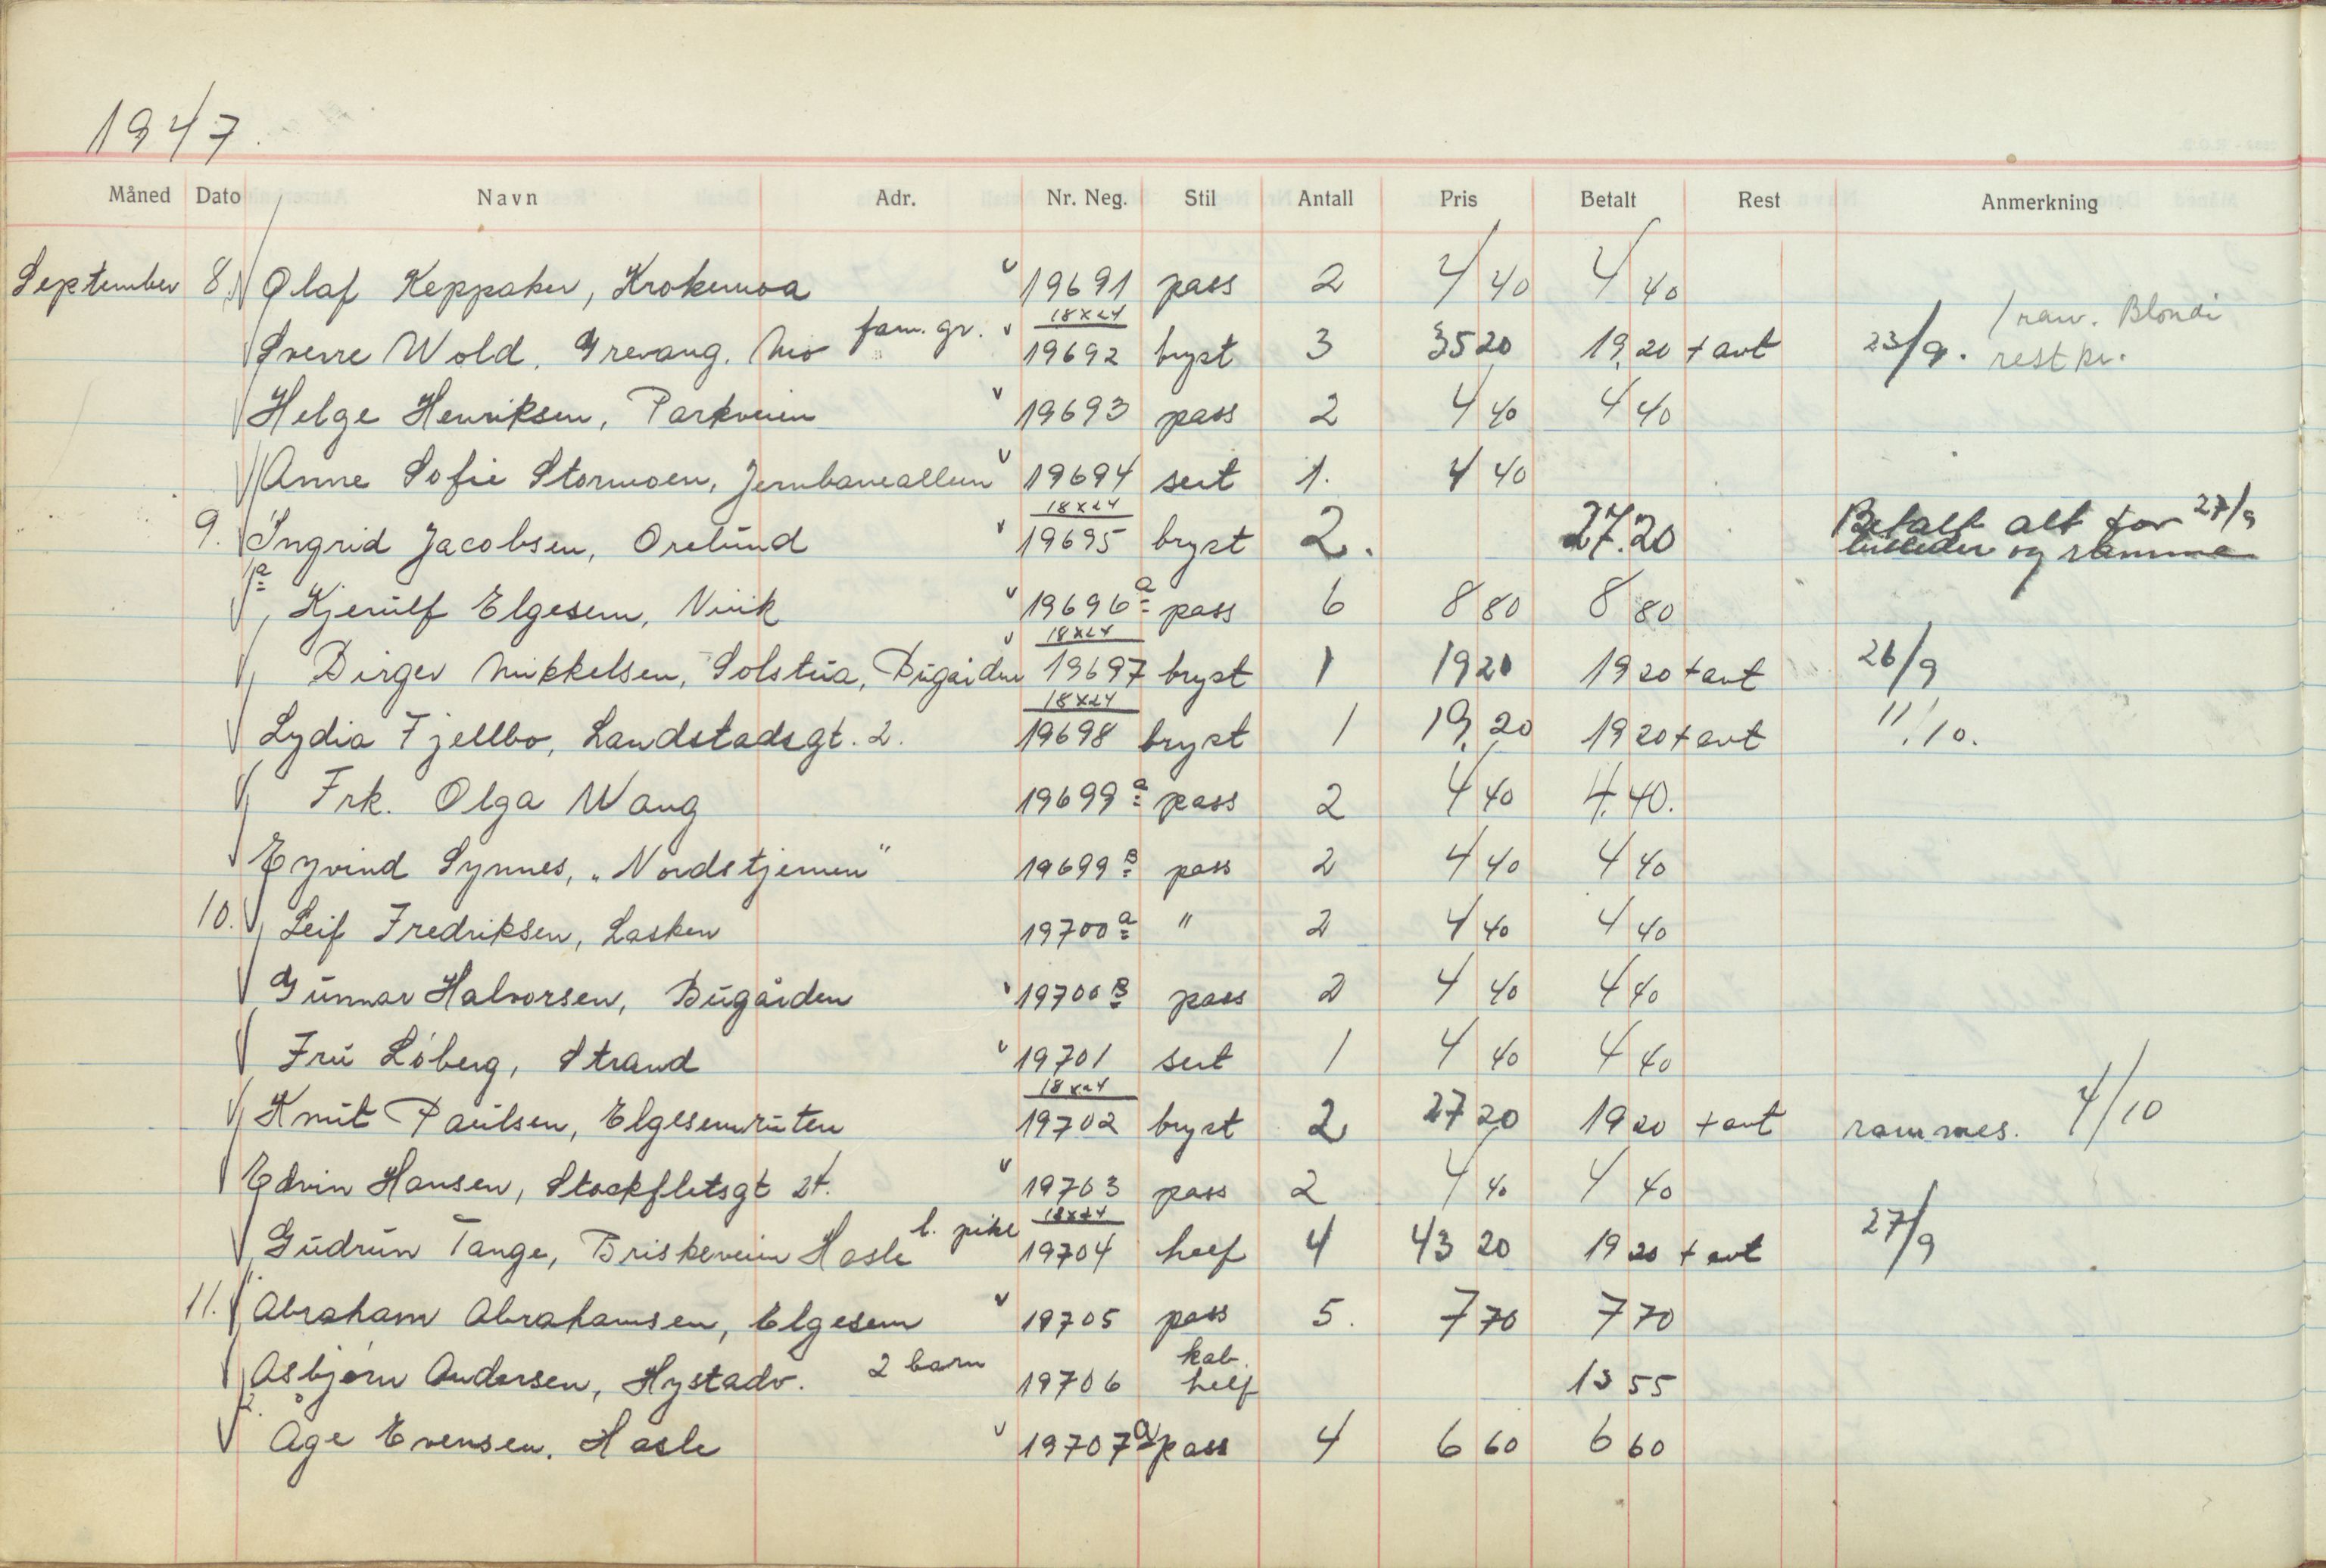 1947.
Måned Dato Navn Adr. Nr. Neg. Stil Antall Pris Betalt Rest Anmerkning
September 8. Olaf Keppaker, Krokemoa 19691 pass 2 4 40 4 40
Sverre Wold, Grevang. Mo fam. gr. 18x24 19692 bryst 3 35 20 19 20 + avt 23/9. 1 ram. Blondi rest kr.
Helge Henriksen, Parkveien 19693 pass 2 4 40 4 40
Anne Sofie Stormoen, Jernbanealleen 19694 seit 1. 4 40
9. Ingrid Jacobsen, Orelund 18x24 19695 bryst 2. 27.20 Betalt alt for 27/9
billeder og ramme
a Kjerulf Elgesem, Virik 19696 a pass 6 8 80 8 80
Birger Mikkelsen, Solstua, Bugården 18x24 19697 bryst 1 19 20 19 20 + avt 26/9
Lydia Fjellbo, Landstadsgt. 2. 18x24 19698 bryst 1 19 20 19 20 + avt 11/10.
Frk. Olga Wang 19699 a pass 2 4 40 4.40.
Eyvind Synnes, "Nordstjernen" 19699 B pass 2 4 40 4 40
10. Leif Fredriksen, Lasken 19700 a " 2 4 40 4 40
Gunnar Halvorsen, Bugården 19700 B pass 2 4 40 4 40
Fru Löberg, Strand 19701 seit 1 4 40 4 40
Knut Paulsen, Elgesemruten 18x24 19702 bryst 2 27 20 19 20 + avt rammes. 4/10
Edvin Hansen, Stockfletsgt 24. 19703 pass 2 4 40 4 40
Gudrun Tange, Briskeveien Hasle l. pike 18x24 19704 helf 4 43 20 19 20 + avt 27/9
11. Abraham Abrahamsen, Elgesem 19705 pass 5. 7 70 7 70
Asbjørn Andersen, Hystadv. 2 barn 19706 kab. helf 13 55
Åge Evensen. Hasle 19707 a pass 4 6 60 6 60